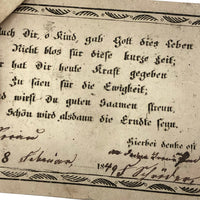 Auch Dir, o Kind, gab Gott dies Leben
Nicht blos für diese kurze Zeit;
Er hat Dir heute Kraft gegeben
Zu säen für die Ewigkeit;
Und wirst Du guten Saamen streun,
Schön wird alsdann die Erndte seyn.
Hierbei denke oft
an
8 Februar 1849